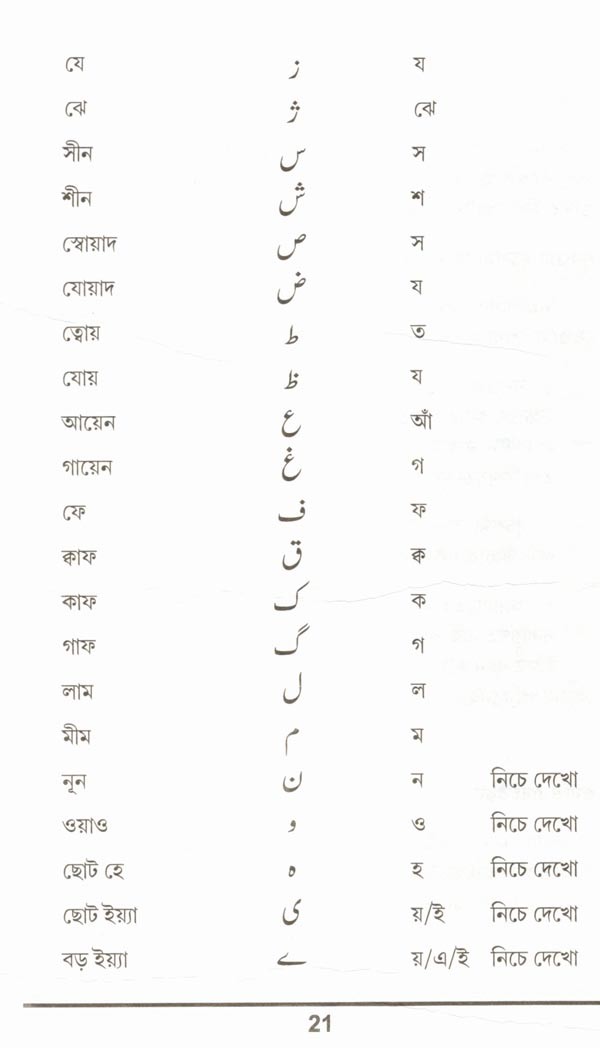 যে ز য
ঝে ژ ঝে
সীন س স
শীন ش শ
স্বোয়াদ ص স
যোয়াদ ض য
ত্বোয় ط ত
যোয় ظ য
আয়েন ع আঁ
গায়েন غ গ
ফে ف ফ
ক্বাফ ق ক্ব
কাফ ک ক
গাফ گ গ
লাম ل ল
মীম م ম
নূন ن ন নিচে দেখো
ওয়াও و ও নিচে দেখো
ছোট হে ہ হ নিচে দেখো
ছোট ইয়্যা ی য়/ই নিচে দেখো
বড় ইয়্যা ے য়/এ/ই নিচে দেখো
21